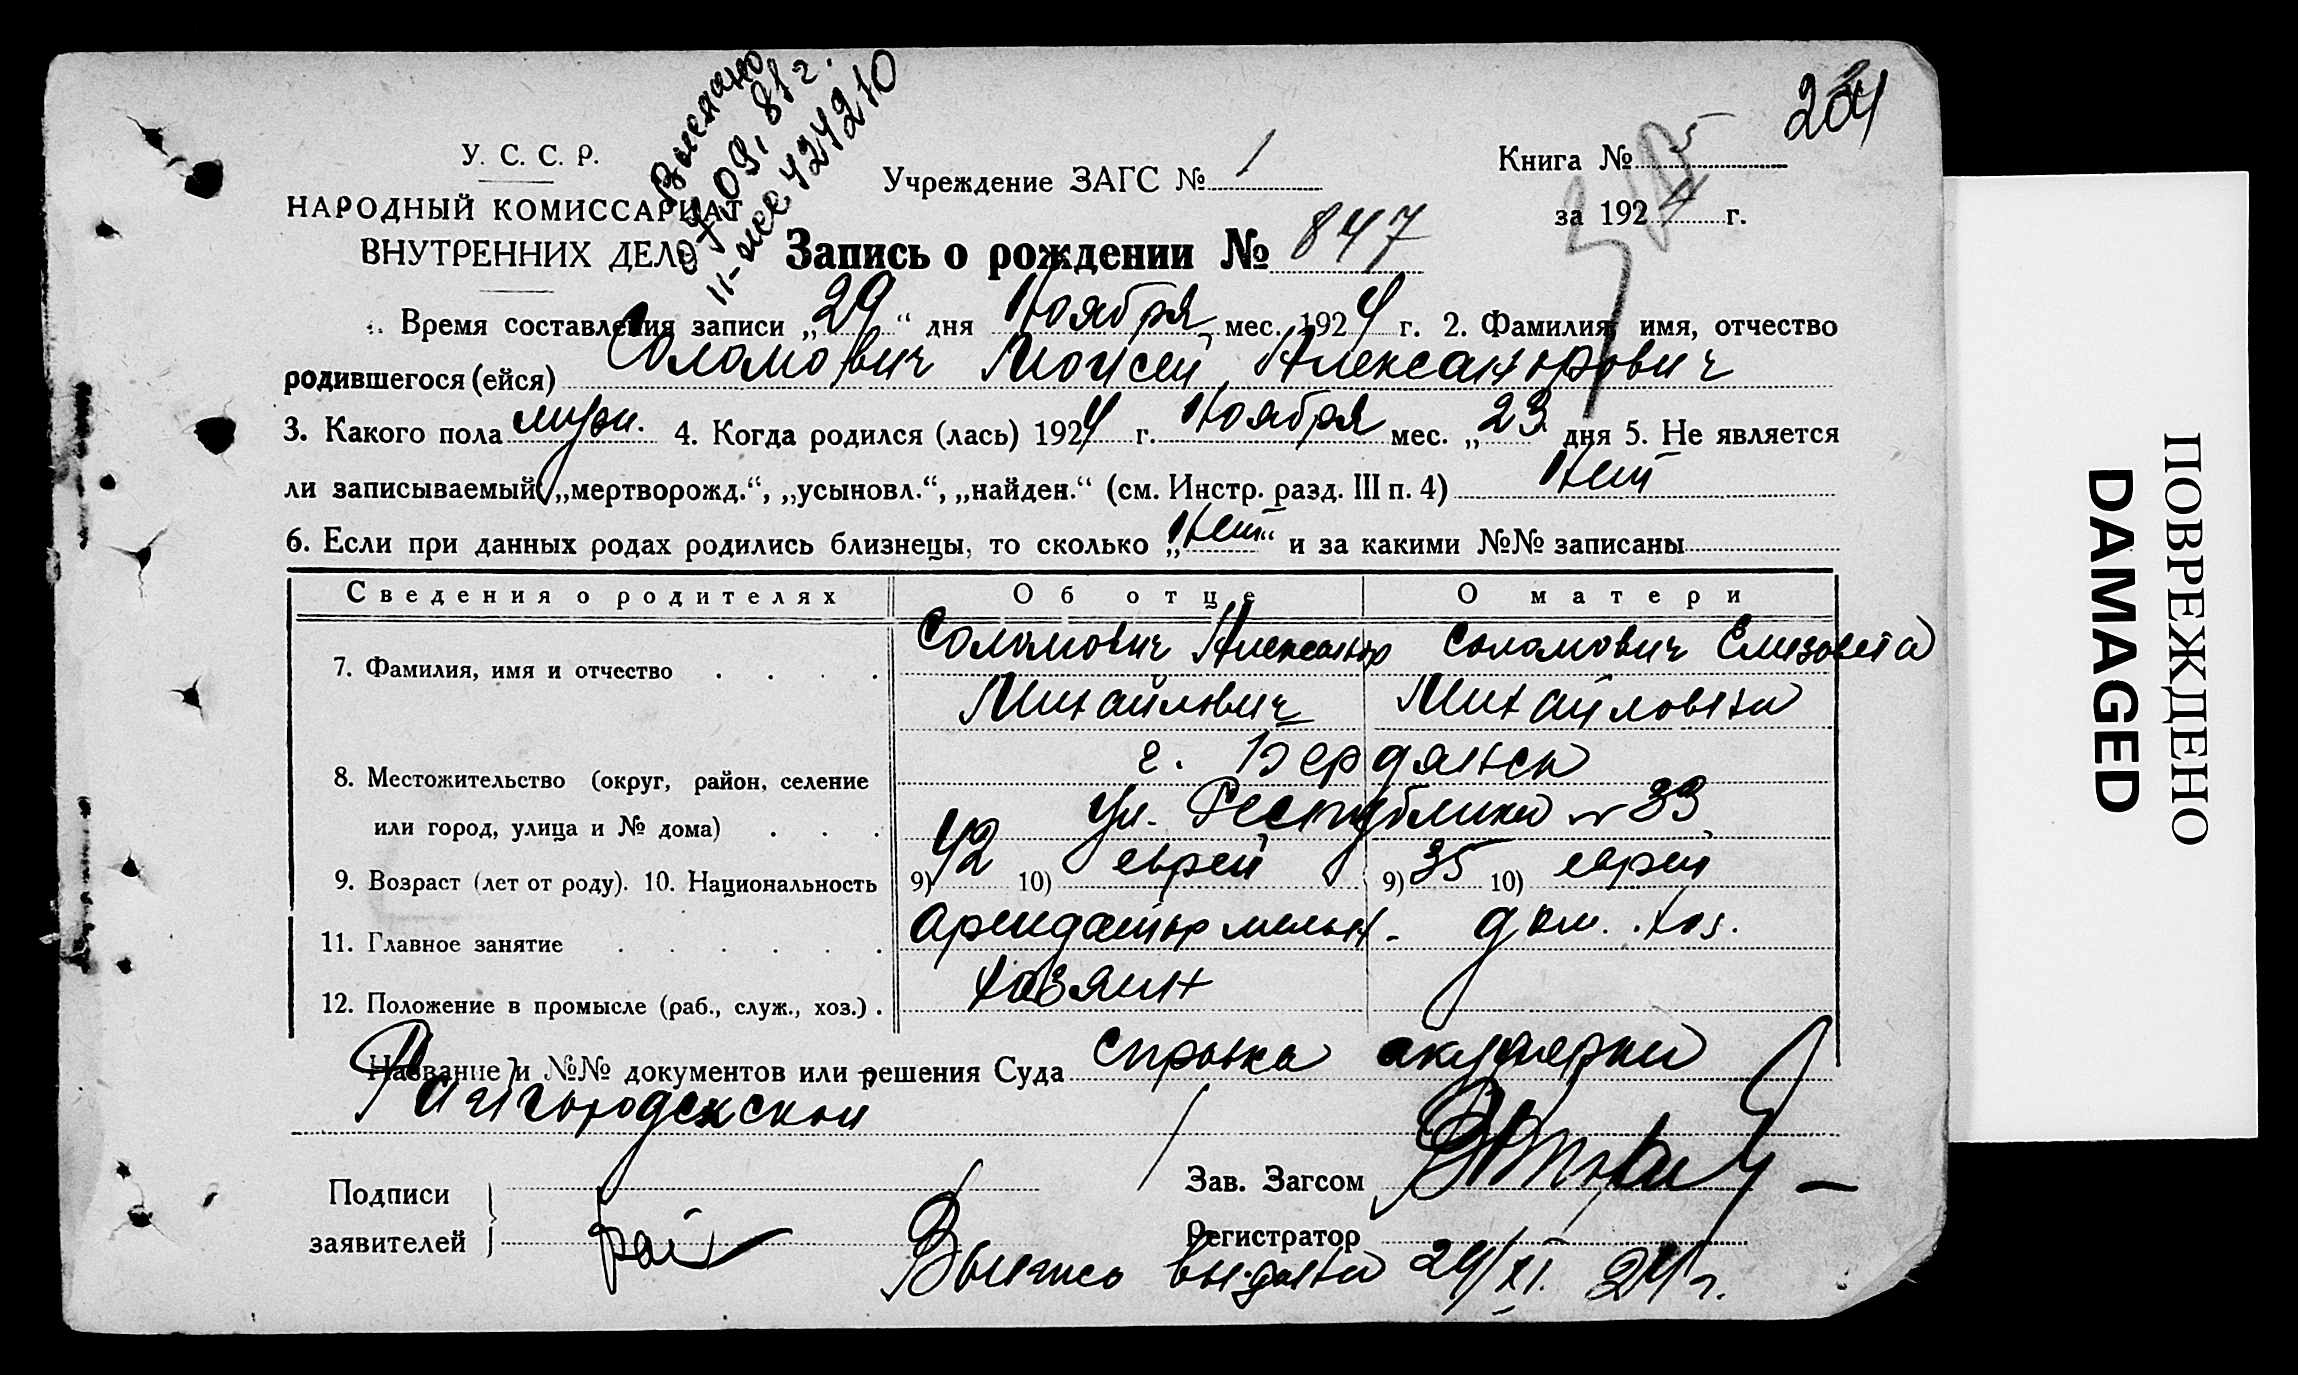 Выслано
7.09.81 г.
II-ЖС 424210
204
У. С. С. Р.
Учреждение ЗАГС № 1
Книга № 5
НАРОДНЫЙ КОМИССАРИАТ
за 1924 г.
ВНУТРЕННИХ ДЕЛ
Запись о рождении № 847
1. Время составления записи „29“ дня Ноября мес. 1924 г. 2. Фамилия, имя, отчество
родившегося (ейся) Соломович Моисей Александрович
3. Какого пола муж. 4. Когда родился (лась) 1924 г. Ноября мес. „23 дня 5. Не является
ли записываемый „мертворожд.“, „усыновл.“, „найден.“ (см. Инстр. разд. III п. 4) Нет
6. Если при данных родах родились близнецы, то сколько „Нет“ и за какими №№ записаны
Сведения о родителях Об отце О матери
7. Фамилия, имя и отчество Соломович Александр Соломович Елизавета
Михайлович Михайловна
г. Бердянск
8. Местожительство (округ, район, селение
или город, улица и № дома) ул. Республики № 33
9. Возраст (лет от роду). 10. Национальность 9) 42 10) еврей 9) 35 10) еврей
11. Главное занятие Арендатор мельн. дом. хоз.
12. Положение в промысле (раб., служ., хоз.) хозяин
Название и №№ документов или решения Суда справка акушерки
Райгородекской
Подписи
заявителей
Зав. Загсом
Регистратор
Выпись выдана 29/XI. 24 г.
ПОВРЕЖДЕНО
DAMAGED